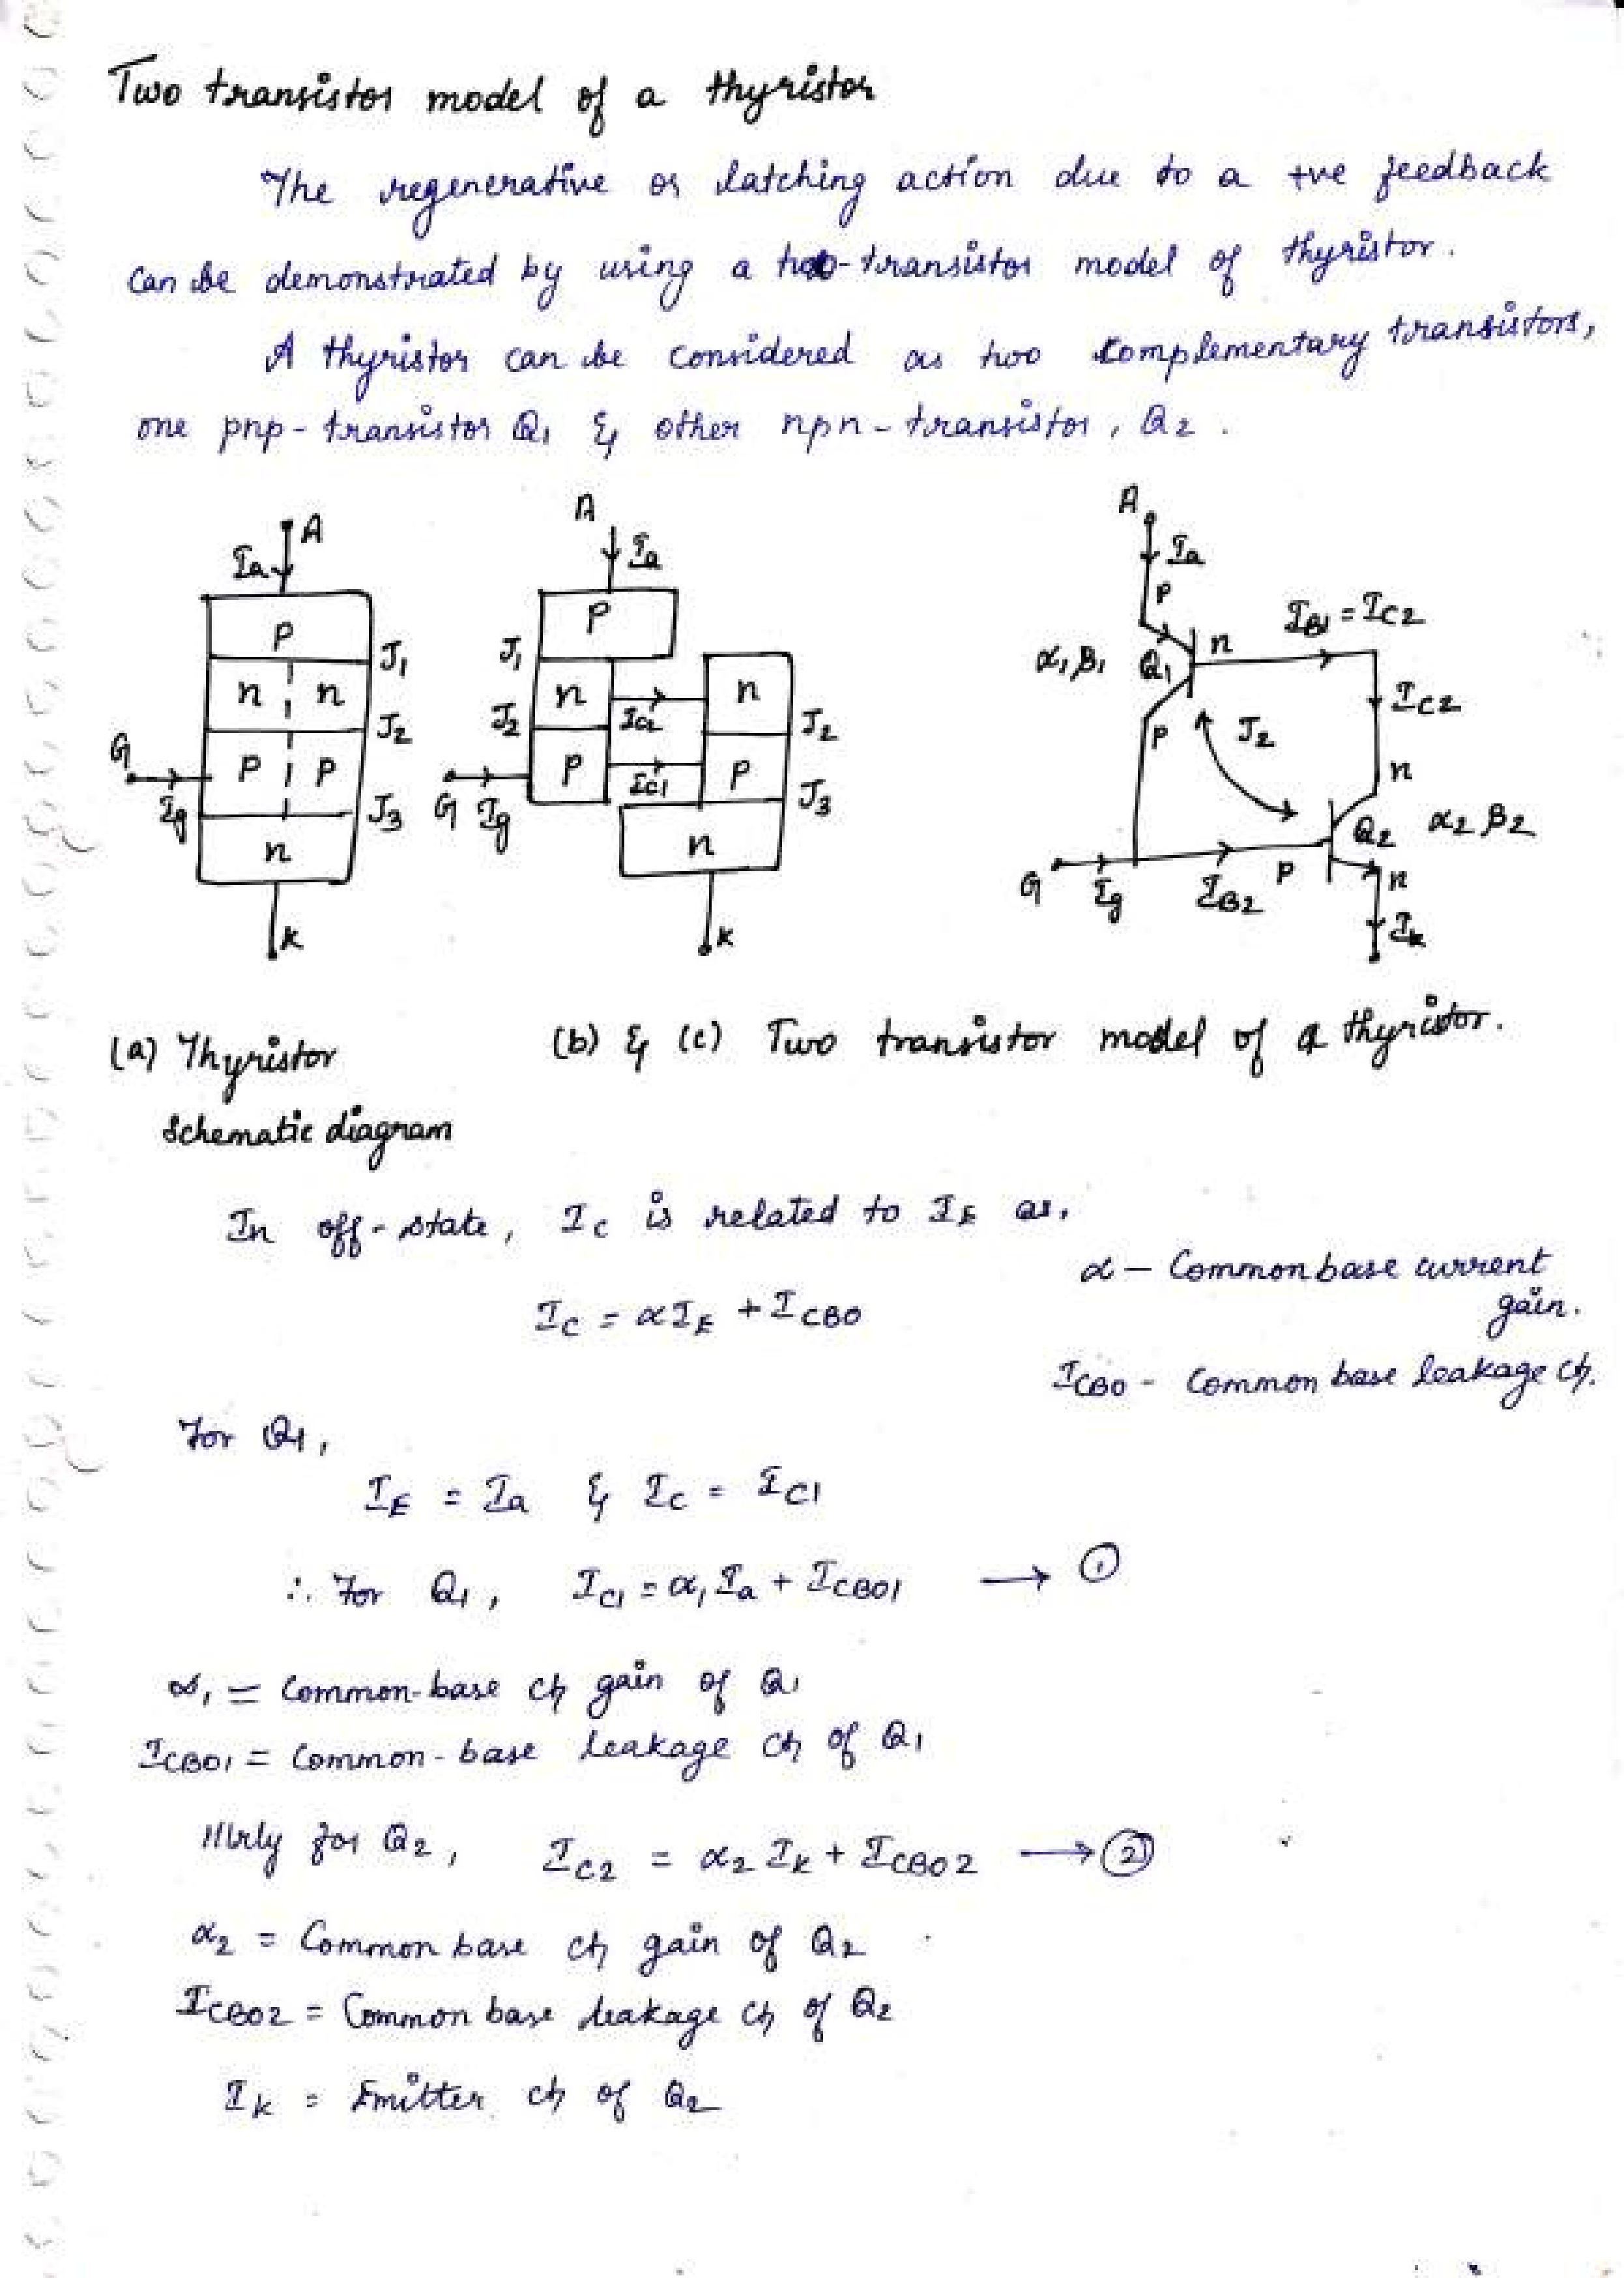 Two transistor model of a thyristor
The regenerative or latching action due to a +ve feedback
can be demonstrated by using a two-transistor model of thyristor.
A thyristor can be considered as two complementary transistors,
one pnp-transistor Q1 & other npn-transistor, Q2.
A
Ia
P
J1
n n
J2
G
P P
Ig
J3
n
K
A
Ia
P
J1
n
n
J2
Ic2
J2
P
P
Ic1
G Ig
J3
n
K
A
Ia
P
n
IB1 = IC2
α1 β1 Q1
IC2
P
J2
n
Q2 α2 β2
G
Ig
IB2
P
n
Ik
(a) Thyristor
Schematic diagram
(b) & (c) Two transistor model of a thyristor.
In off-state, IC is related to IE as,
α – Common base current
gain.
IC = αIE + ICBO
ICBO - Common base leakage ct.
For Q1,
IE = Ia & IC = IC1
∴ For Q1, IC1 = α1 Ia + ICBO1 → ①
α1 = Common-base ct gain of Q1
ICBO1 = Common-base leakage ct of Q1
lllrly for Q2, IC2 = α2 IK + ICBO2 → ②
α2 = Common base ct gain of Q2
ICBO2 = Common base leakage ct of Q2
IK = Emitter ct of Q2